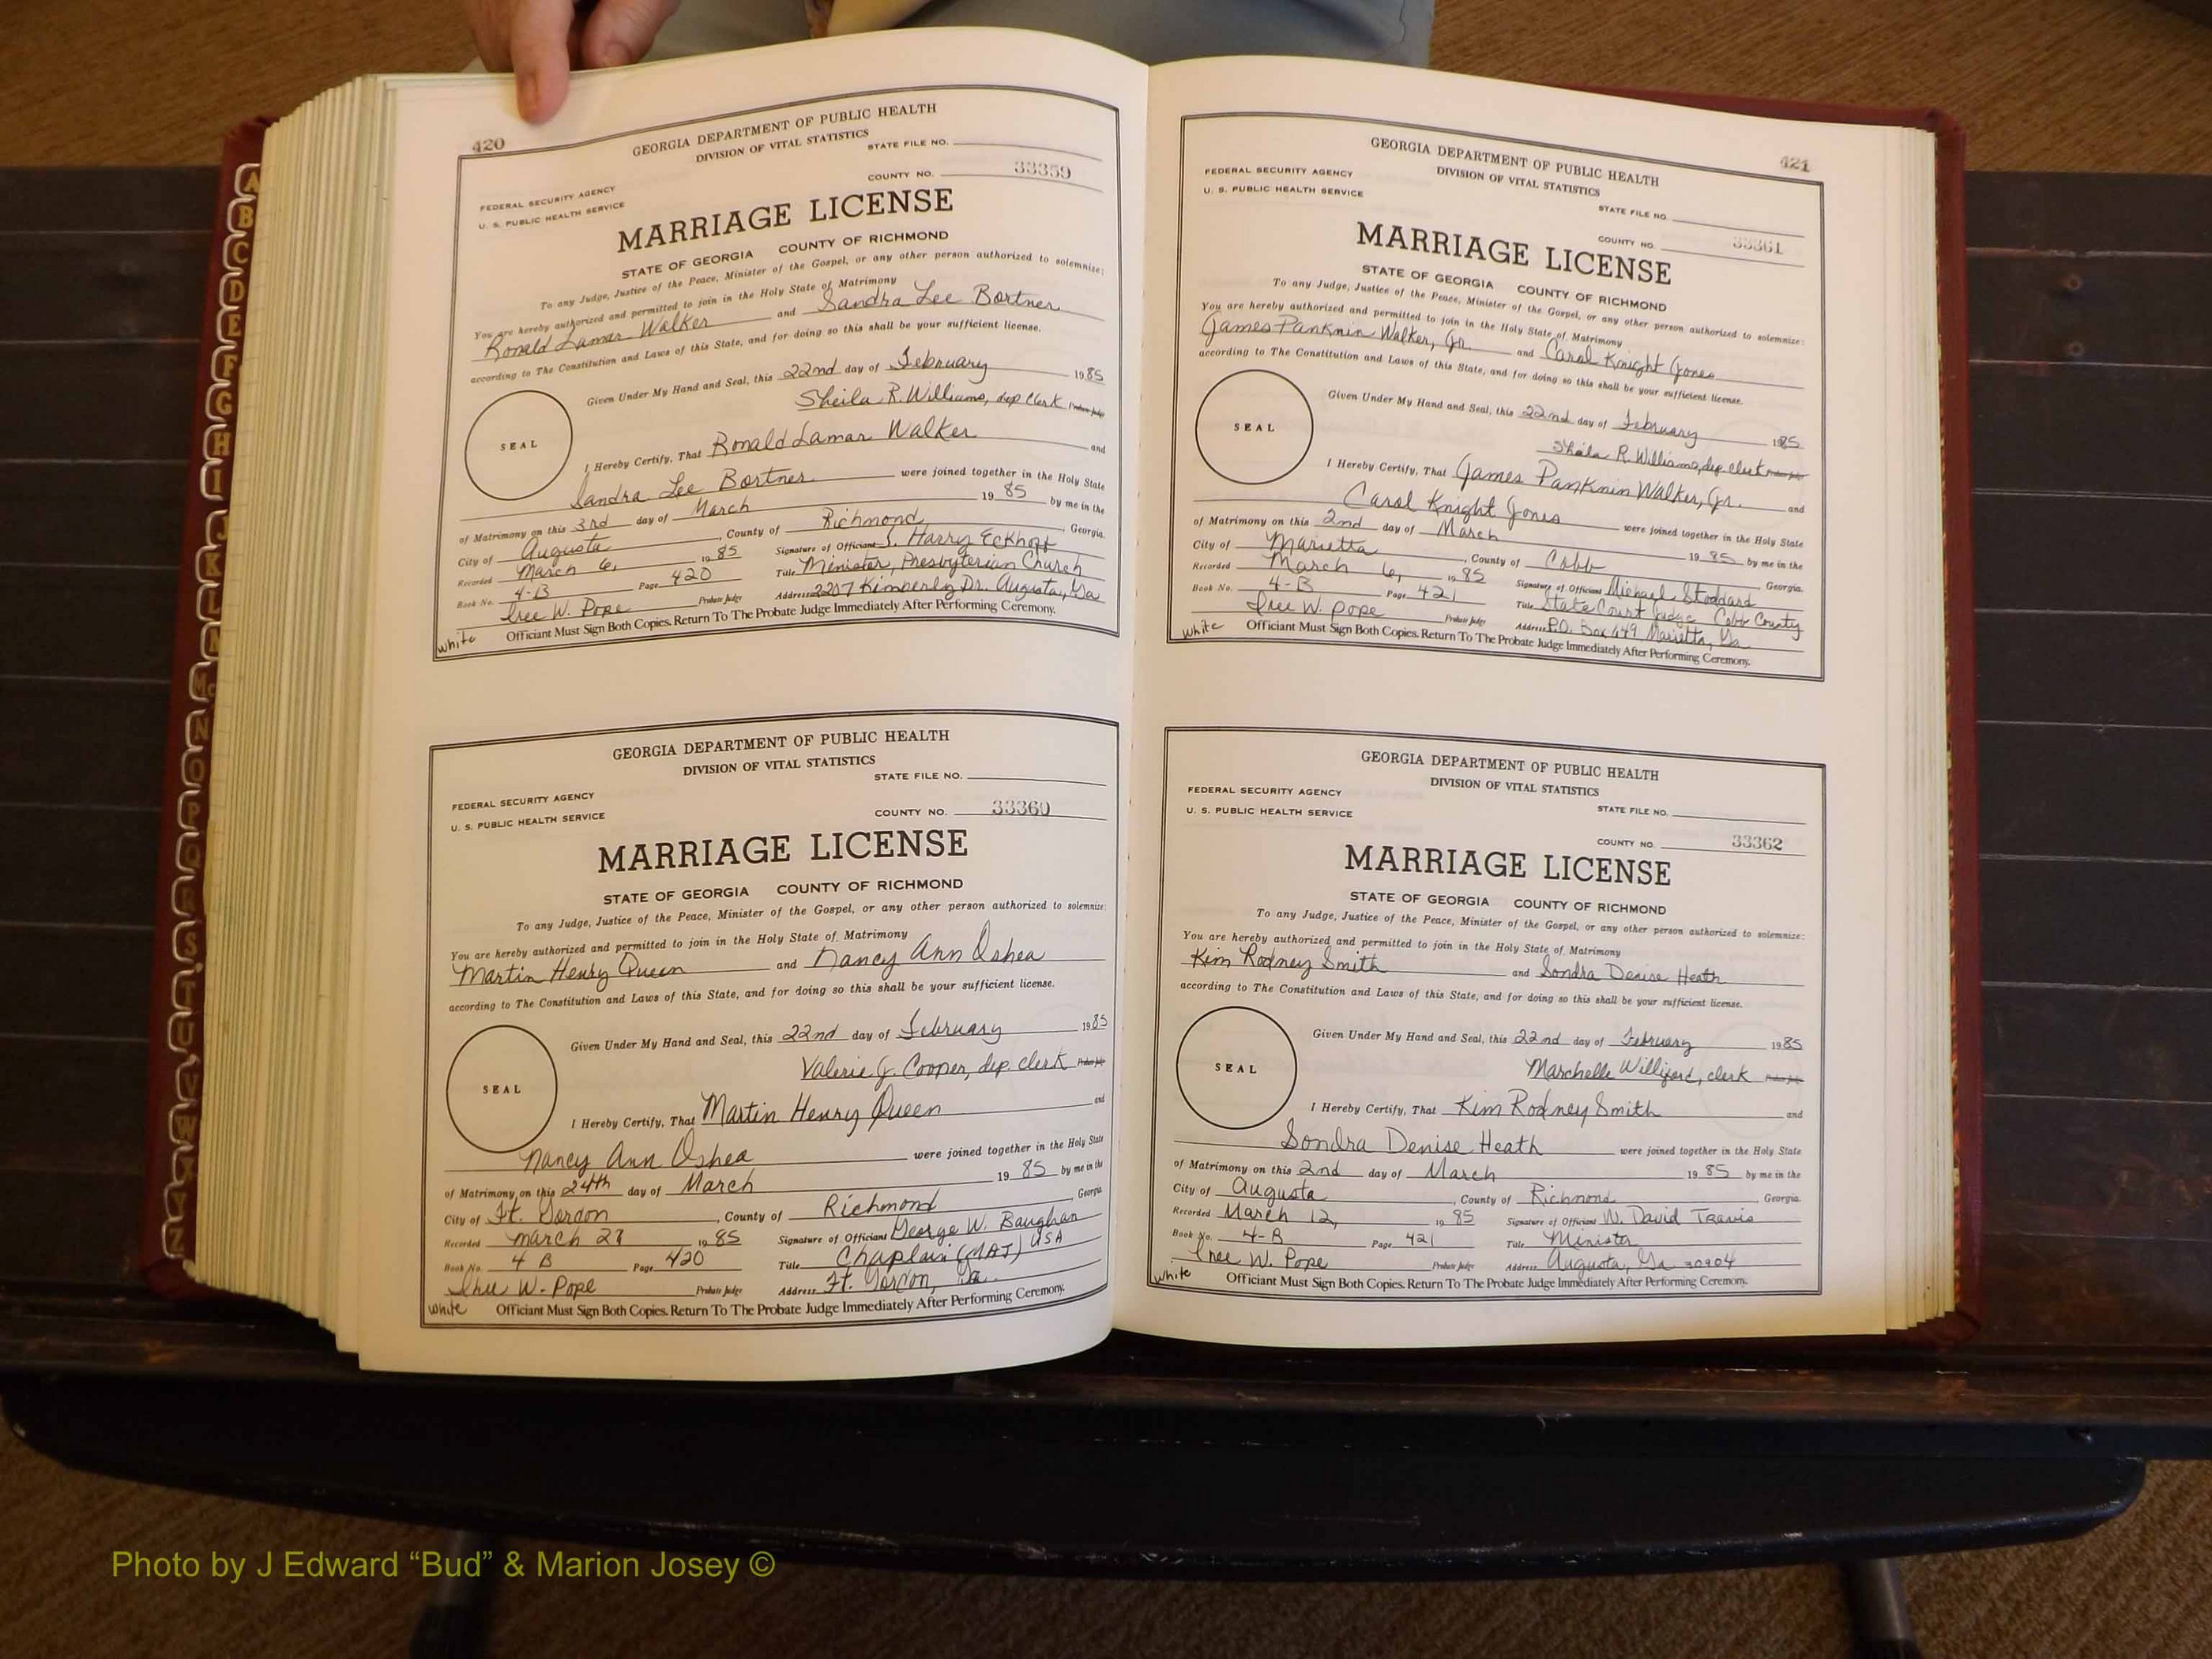 A
B
C
D
E
F
G
H
I
J
K
L
M
Mc
N
O
P
Q
R
S
T
U
V
W
Y
Z
420
GEORGIA DEPARTMENT OF PUBLIC HEALTH
DIVISION OF VITAL STATISTICS
STATE FILE NO.
COUNTY NO. 33359
FEDERAL SECURITY AGENCY
U. S. PUBLIC HEALTH SERVICE
MARRIAGE LICENSE
STATE OF GEORGIA COUNTY OF RICHMOND
To any Judge, Justice of the Peace, Minister of the Gospel, or any other person authorized to solemnize:
You are hereby authorized and permitted to join in the Holy State of Matrimony
Ronald Lamar Walker and Sandra Lee Bortner
according to The Constitution and Laws of this State, and for doing so this shall be your sufficient license.
Given Under My Hand and Seal, this 22nd day of February 1985
Sheila R. Williams, dep clerk Probate Judge
SEAL
I Hereby Certify, That Ronald Lamar Walker and
Sandra Lee Bortner were joined together in the Holy State
of Matrimony on this 3rd day of March 19 85 by me in the
City of Augusta, County of Richmond, Georgia.
Recorded March 6, 19 85 Signature of Officiant J. Harry Eckhoff
Book No. 4-B Page 420 Title Minister, Presbyterian Church
Iree W. Pope Probate Judge Address 2207 Kimberly Dr. Augusta, Ga
white Officiant Must Sign Both Copies. Return To The Probate Judge Immediately After Performing Ceremony.
GEORGIA DEPARTMENT OF PUBLIC HEALTH
DIVISION OF VITAL STATISTICS
STATE FILE NO.
FEDERAL SECURITY AGENCY
U. S. PUBLIC HEALTH SERVICE
COUNTY NO. 33360
MARRIAGE LICENSE
STATE OF GEORGIA COUNTY OF RICHMOND
To any Judge, Justice of the Peace, Minister of the Gospel, or any other person authorized to solemnize:
You are hereby authorized and permitted to join in the Holy State of Matrimony
Martin Henry Queen and Nancy Ann Oshea
according to The Constitution and Laws of this State, and for doing so this shall be your sufficient license.
Given Under My Hand and Seal, this 22nd day of February 1985
Valerie J. Cooper, dep. clerk Probate Judge
SEAL
I Hereby Certify, That Martin Henry Queen and
Nancy Ann Oshea were joined together in the Holy State
of Matrimony on this 24th day of March 19 85 by me in the
City of Ft. Gordon, County of Richmond, Georgia
Recorded March 27 19 85 Signature of Officiant George W. Baughan
Book No. 4 B Page 420 Title Chaplain (MAJ) USA
Iree W. Pope Probate Judge Address Ft. Gordon, Ga.
white Officiant Must Sign Both Copies. Return To The Probate Judge Immediately After Performing Ceremony.
421
GEORGIA DEPARTMENT OF PUBLIC HEALTH
DIVISION OF VITAL STATISTICS
FEDERAL SECURITY AGENCY
U. S. PUBLIC HEALTH SERVICE
STATE FILE NO.
COUNTY NO. 33361
MARRIAGE LICENSE
STATE OF GEORGIA COUNTY OF RICHMOND
To any Judge, Justice of the Peace, Minister of the Gospel, or any other person authorized to solemnize:
You are hereby authorized and permitted to join in the Holy State of Matrimony
James Panknin Walker, Jr. and Carol Knight Jones
according to The Constitution and Laws of this State, and for doing so this shall be your sufficient license.
Given Under My Hand and Seal, this 22nd day of February 1985
Sheila R. Williams, dep. clerk Probate Judge
SEAL
I Hereby Certify, That James Panknin Walker, Jr. and
Carol Knight Jones were joined together in the Holy State
of Matrimony on this 2nd day of March 19 85 by me in the
City of Marietta, County of Cobb Georgia.
Recorded March 6, 19 85 Signature of Officiant Michael Stoddard
Book No. 4-B Page 421 Title State Court Judge Cobb County
Iree W. Pope Probate Judge Address P.O. Box 649 Marietta, Ga
white Officiant Must Sign Both Copies. Return To The Probate Judge Immediately After Performing Ceremony.
GEORGIA DEPARTMENT OF PUBLIC HEALTH
DIVISION OF VITAL STATISTICS
FEDERAL SECURITY AGENCY
U. S. PUBLIC HEALTH SERVICE
STATE FILE NO.
COUNTY NO. 33362
MARRIAGE LICENSE
STATE OF GEORGIA COUNTY OF RICHMOND
To any Judge, Justice of the Peace, Minister of the Gospel, or any other person authorized to solemnize:
You are hereby authorized and permitted to join in the Holy State of Matrimony
Kim Rodney Smith and Sondra Denise Heath
according to The Constitution and Laws of this State, and for doing so this shall be your sufficient license.
Given Under My Hand and Seal, this 22nd day of February 1985
Marchelle Williford, clerk Probate Judge
SEAL
I Hereby Certify, That Kim Rodney Smith and
Sondra Denise Heath were joined together in the Holy State
of Matrimony on this 2nd day of March 19 85 by me in the
City of Augusta, County of Richmond Georgia.
Recorded March 12, 19 85 Signature of Officiant W. David Travis
Book No. 4-B Page 421 Title Minister
Iree W. Pope Probate Judge Address Augusta, Ga 30904
white Officiant Must Sign Both Copies. Return To The Probate Judge Immediately After Performing Ceremony.
Photo by J Edward “Bud” & Marion Josey ©